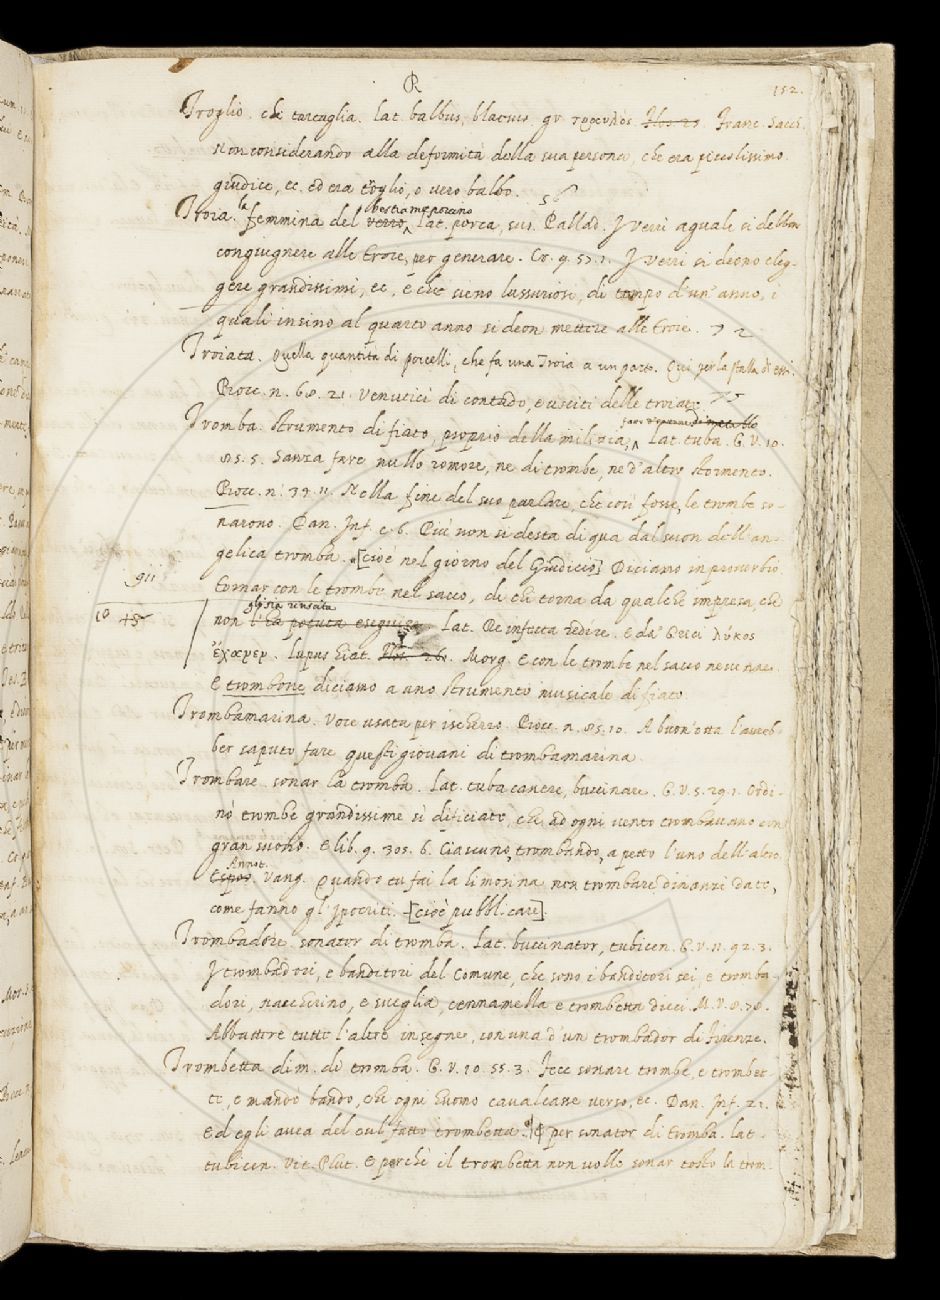 R
152.
Troglio. chi tartaglia. lat. balbus, blaesus. gr. τραυλός. Franc. Sacch.
Non considerando alla deformità della sua persona, che era piccolissimo
giudice, ec. ed era troglio, o vero balbo.
56
la bestia meporcino
Troia. femmina del verro, lat. porca, sus. Pallad. I verri aguale si debbon
congiugnere alle troie, per generare. Cr. 9. 57. 1. I verri si deono eleg-
gere grandissimi, ec. e che sieno lussuriosi, di tempo d'un' anno, i
quali insino al quarto anno si deon mettere alle troie. 72
Troiata. Quella quantità di porcelli, che fa una Troia a un parto. Qui per la stalla di essi.
Bocc. n. 60. 21. Venutici di contado, e usciti delle troiate 75
Tromba. Strumento di fiato, proprio della milizia, lat. tuba. G. V. 10.
85. 5. Sanza fare nullo romore, ne di trombe, ne d'altro stormento.
Bocc. n. 77. Nella fine del suo parlare, che così fosse, le trombe so-
narono. Dan. Inf. c. 6. Più non si desta di qua dal suon dell'an-
gelica tromba. [cioè nel giorno del Giudicio] Diciamo in proverbio
911
Tornar con le trombe nel sacco, di chi torna da qualche impresa, che
10 75
non l'ha potuta eseguire lat. Re infecta redire. E da Greci λύκος
gli sia riuscita
ἔχανεν. lupus hiat. Flos. 26. Morg. E con le trombe nel sacco
E trombone diciamo a uno strumento musicale di fiato
Trombamarina. Voce usata per ischerzo. Bocc. n. 85. 10. A buon'otta l'avreb-
ber saputo fare questi giovani di trombamarina.
Trombare. sonar la tromba. lat. tuba canere, buccinare. G. V. 5. 29. 1. Ordi-
nò trombe grandissime sì dificiate, che ad ogni vento trombavano con
gran suono. E lib. 9. 305. 6. Ciascuno, trombando, a petto l'uno dell'altro.
Annot.
Espos. Vang. Quando tu fai la limosina non trombare dinanzi da te,
come fanno gl'Ipocriti. [cioè pubblicare].
Trombadore. sonator di tromba. lat. buccinator, tubicen. G. V. 11. 92. 3.
I trombadori, e banditori del Comune, che sono i banditori sei, e tromba
dori, naccherino, e sveglia, cennamella e trombetta dieci. M. V. 8. 78.
Abbattere tutte l'altre insegne, con una d'un trombador di Firenze.
Trombetta dim. di tromba. G. V. 10. 55. 3. Fece sonare trombe, e trombet-
te, e mandò bando, che ogni huomo cavalcasse verso, ec. Dan. Inf. 21.
Ed egli avea del cul fatto trombetta. E per sonator di tromba. lat.
tubicen. Vit. Plut. E perchè il trombetta non volle sonar tosto la trom